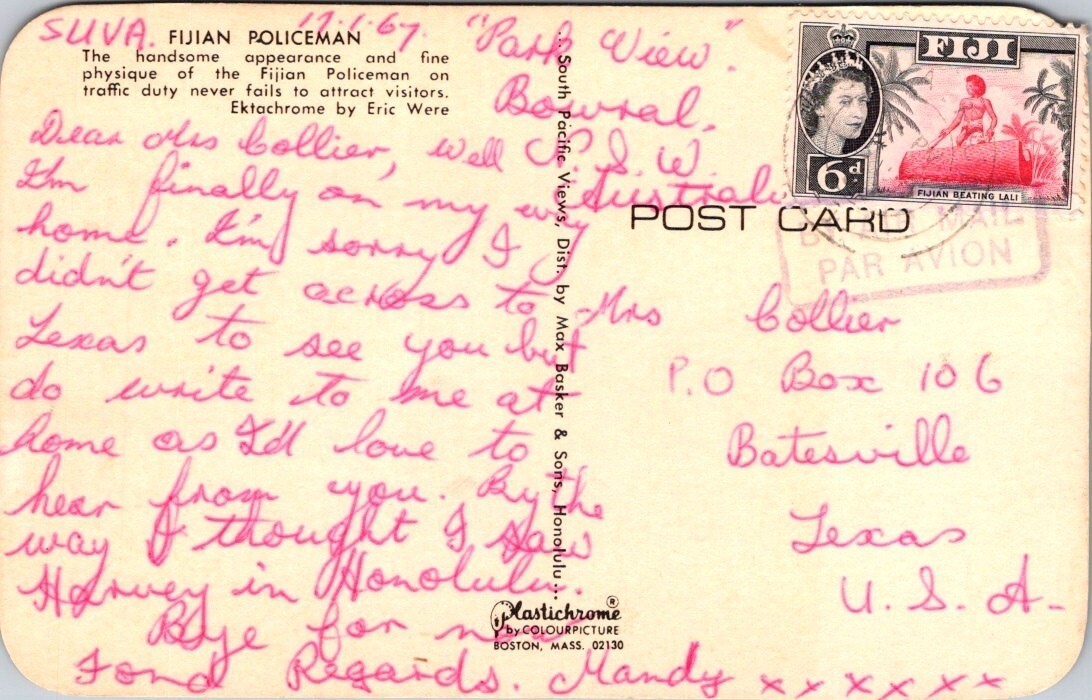 SUVA. 17.1.67. "Park View".
Bowral,
N. S. W.
Australia
FIJIAN POLICEMAN
The handsome appearance and fine
physique of the Fijian Policeman on
traffic duty never fails to attract visitors.
Ektachrome by Eric Were
Dear Mrs Collier, well
I'm finally on my way
home. I'm sorry I
didn't get across to
Texas to see you but
do write to me at
home as I'd love to
hear from you. By the
way I thought I saw
Harvey in Honolulu.
Bye for now
Fond Regards. Mandy x x x x x x
...South Pacific Views, Dist. by Max Basker & Sons, Honolulu...
Plastichrome ®
by COLOURPICTURE
BOSTON, MASS. 02130
FIJI
6d
FIJIAN BEATING LALI
POST CARD
BY AIR MAIL
PAR AVION
Mrs Collier
P.O Box 106
Batesville
Texas
U. S. A-